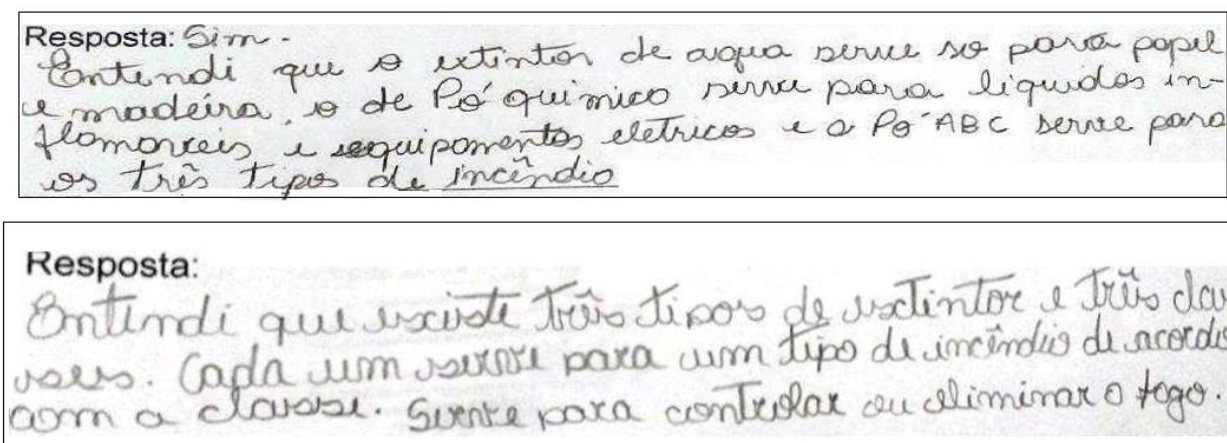 Resposta: Sim.
Entendi que o extintor de agua serve so para papel
e madeira, o de Pó químico serve para liquidos in-
flamaveis e equipamentos eletricos e o Pó ABC serve para
os três tipos de incêndio
Resposta:
Entendi que existe três tipos de extintor e três clas
ses. Cada um serve para um tipo de incêndio de acordo
com a classe. Serve para controlar ou eliminar o fogo.